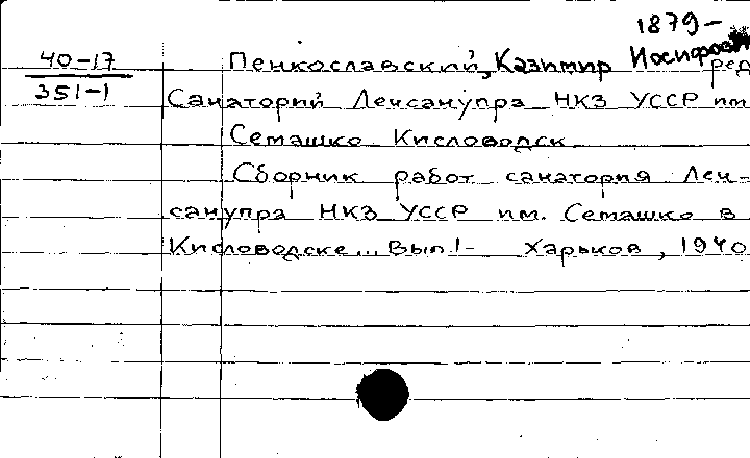 1879-
40-17 Пенкославский, Казимир Иосифович ред
351-1 Санаторий Лечсанупра НКЗ УССР им.
Семашко Кисловодск
Сборник работ санатория Леч-
санупра НКЗ УССР им. Семашко в
Кисловодске... Вып.1- Харьков, 1940